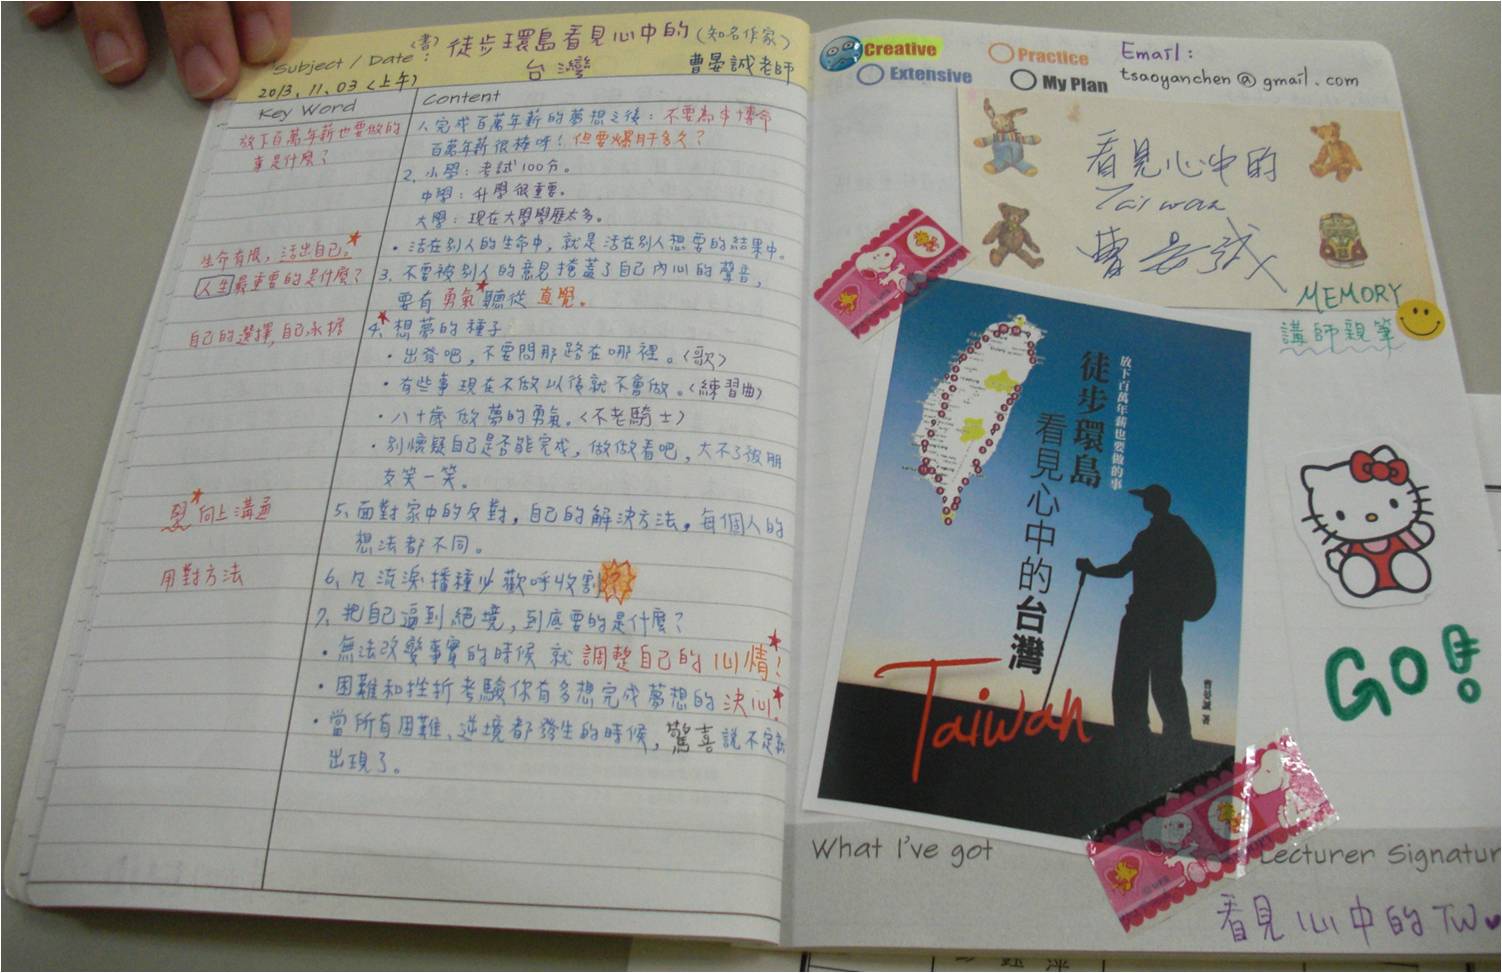 Subject / Date :
(書) 徒步環島看見心中的 (知名作家)
台灣 曹晏誠老師
2013. 11. 03 (上午)
Key Word
Content
放下百萬年薪也要做的
事是什麼?
生命有限，活出自己。
人生最重要的是什麼?
自己的選擇，自己承擔
向上溝通
用對方法
1. 完成百萬年薪的夢想之後：不要為
百萬年薪很棒呀! 但要爆肝多久?
2. 小學：考試100分。
中學：升學很重要。
大學：現在大學學歷太多。
・活在別人的生命中，就是活在別人想要的結果中。
3. 不要被別人的意見掩蓋了自己內心的聲音，
要有勇氣聽從 直覺。
4. 想夢的種子
・出發吧，不要問那路在哪裡。(歌)
・有些事現在不做以後就不會做。(練習曲)
・八十歲做夢的勇氣。(不老騎士)
・別懷疑自己是否能完成，做做看吧，大不了被朋
友笑一笑。
5. 面對家中的反對，自己的解決方法。每個人的
想法都不同。
6. 凡流淚播種必歡呼收割
7. 把自己逼到絕境，到底要的是什麼?
・無法改變事實的時候 就 調整自己的心情!
・困難和挫折考驗你有多想完成夢想的 決心!
・當所有困難、逆境都發生的時候，驚喜說不定就
出現了。
Creative
Practice
Extensive
My Plan
Email :
tsaoyanchen @ gmail . com
看見心中的
Taiwan
曹晏誠
MEMORY
講師親筆
放下百萬年薪也要做的事
徒步環島
看見心中的台灣
Taiwan
曹晏誠 著
GO!
What I've got
Lecturer Signatur
看見心中的TW